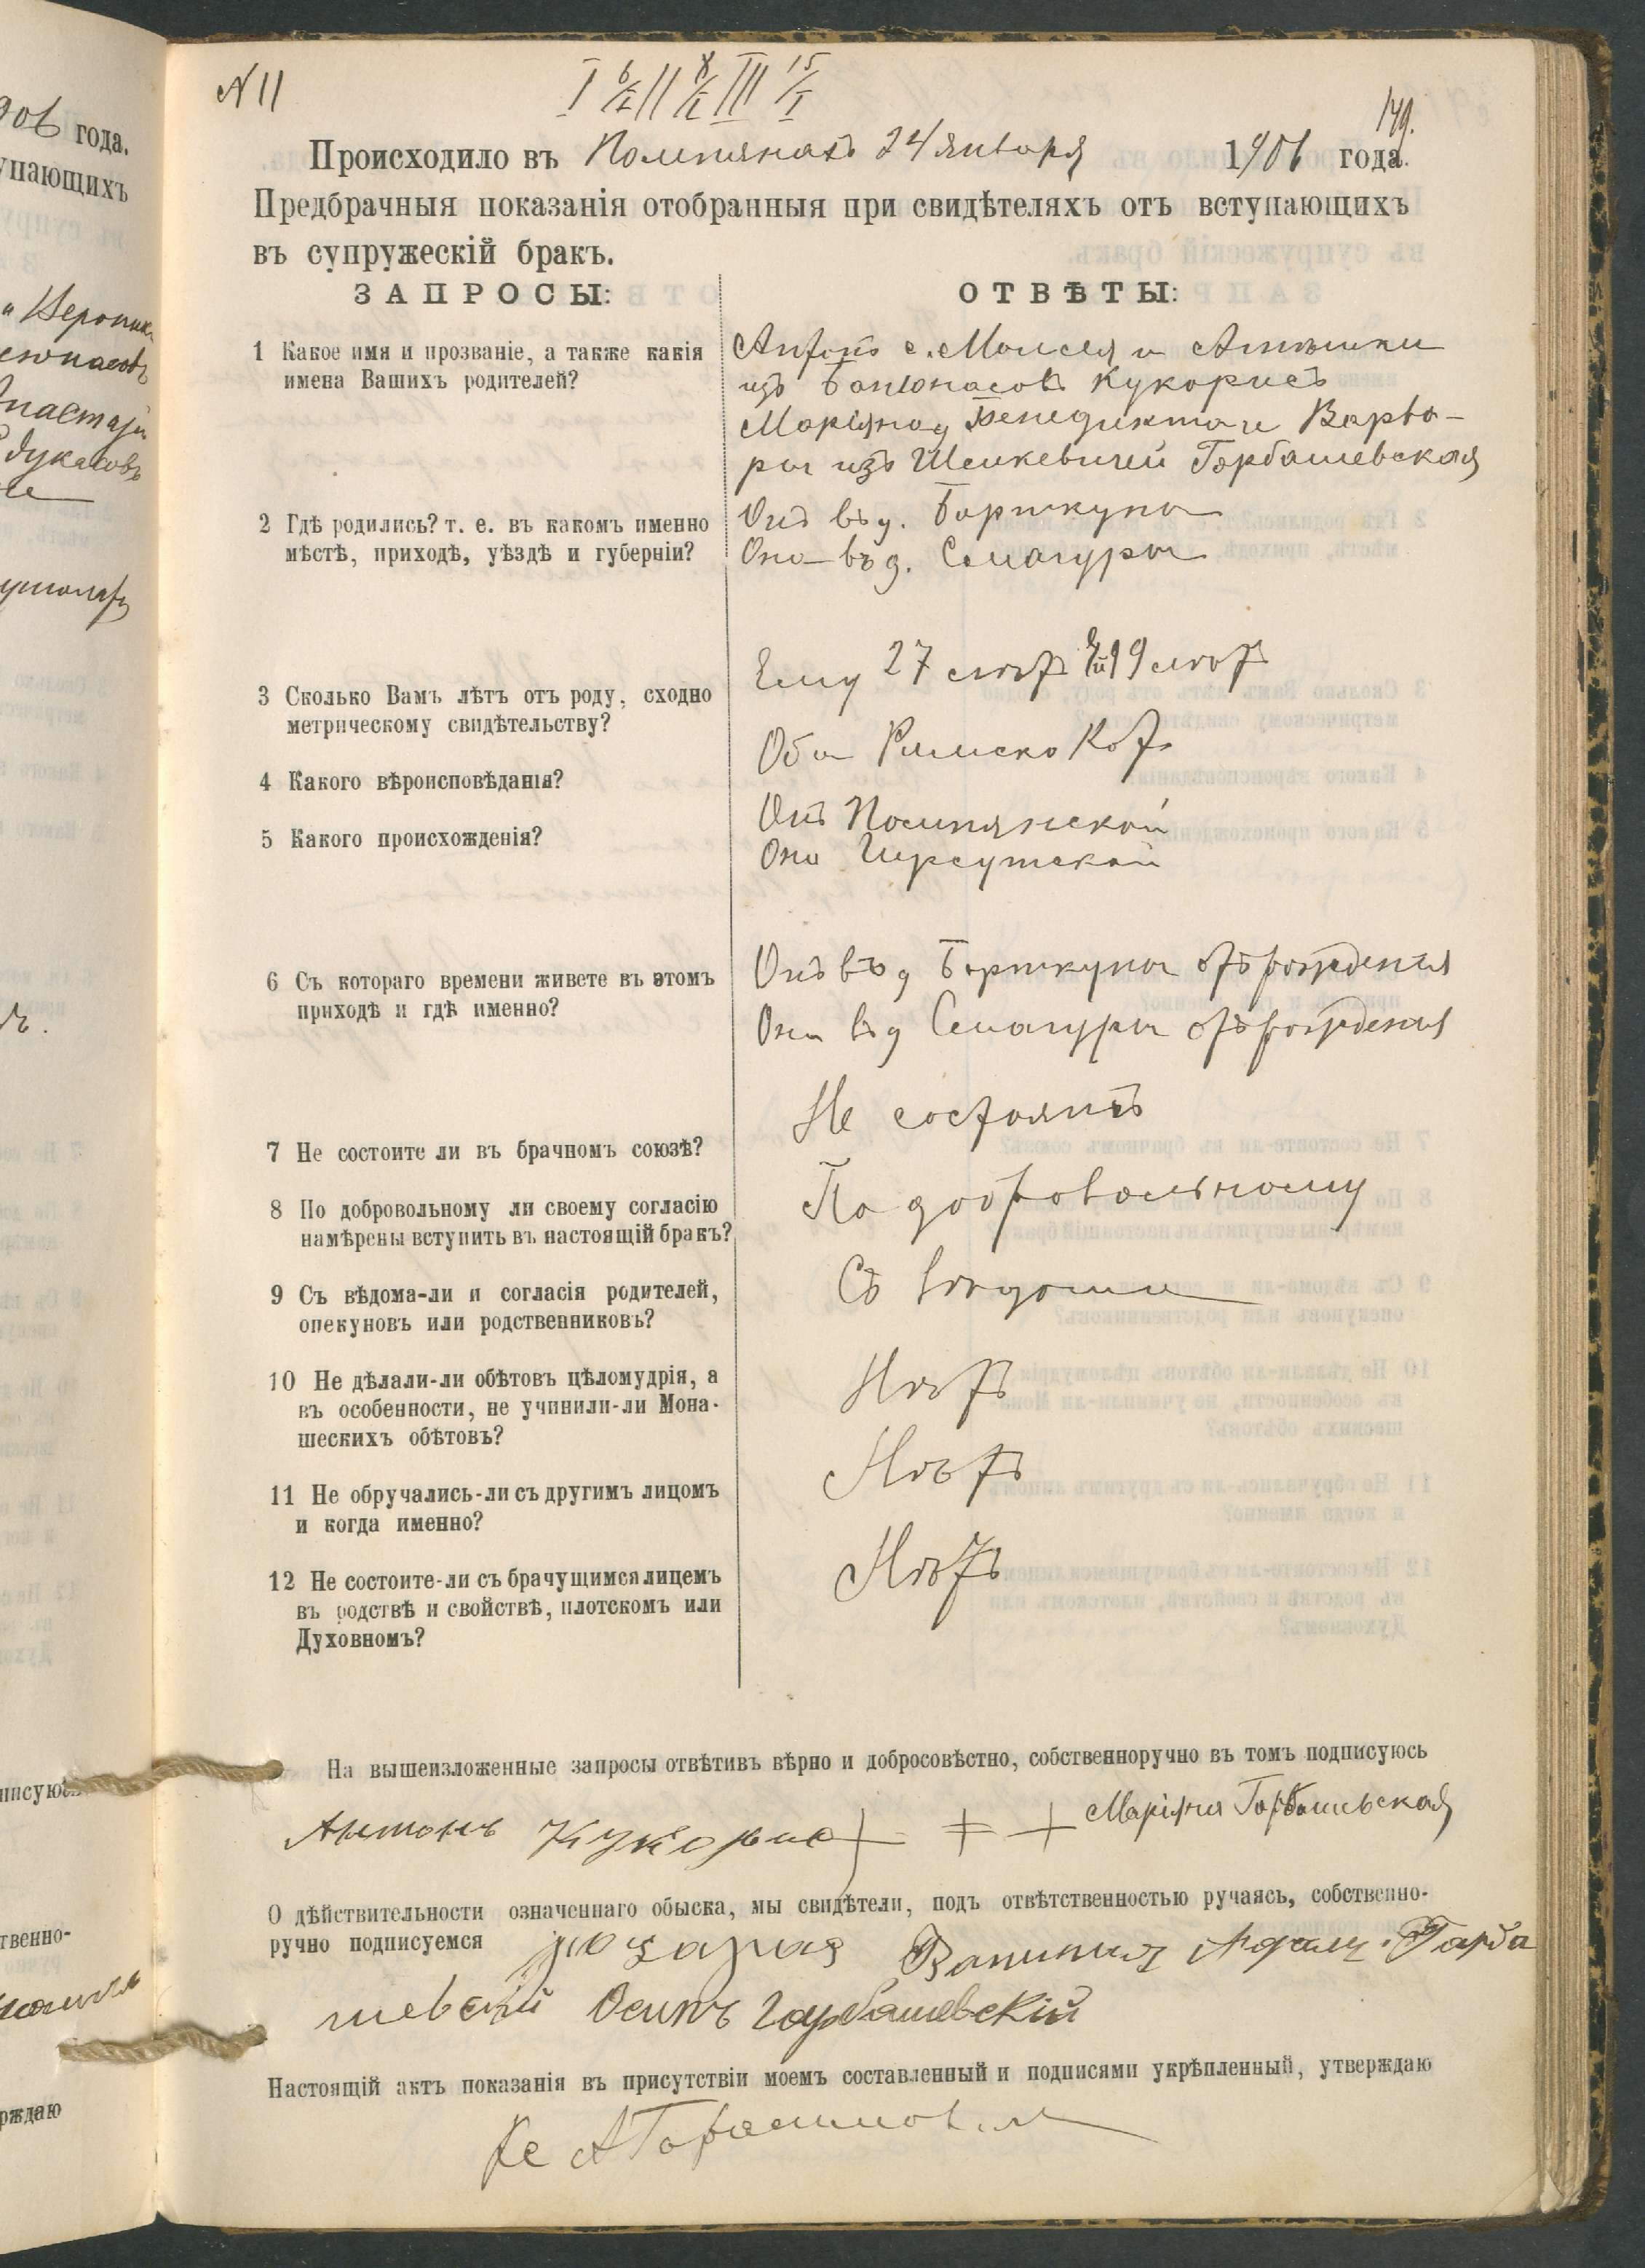 № 11
I 6/I II 8/I III 15/I
149.
Происходило въ Помпянахъ 24 января 1906 года.
Предбрачныя показанія отобранныя при свидѣтеляхъ отъ вступающихъ
въ супружескій бракъ.
ЗАПРОСЫ: ОТВѢТЫ:
1 Какое имя и прозваніе, а также какія
имена Вашихъ родителей?
Антонъ с. Моисея и
изъ Кукорисъ
Маріянна д Бенедикта и Варва-
ры изъ Горбашевская
2 Гдѣ родились? т. е. въ какомъ именно
мѣстѣ, приходѣ, уѣздѣ и губерніи?
Онъ въ д. Барткуны
Она въ д. Смагуры
3 Сколько Вамъ лѣтъ отъ роду, сходно
метрическому свидѣтельству?
Ему 27 лѣтъ Ей 19 лѣтъ
4 Какого вѣроисповѣданія?
Оба Римско Кат.
5 Какого происхожденія?
Онъ Помпянской
Она
6 Съ котораго времени живете въ этомъ
приходѣ и гдѣ именно?
Онъ въ д Барткуны отъ рожденія
Она въ д Смагуры отъ рожденія
7 Не состоите ли въ брачномъ союзѣ?
Не состоимъ
8 По добровольному ли своему согласію
намѣрены вступить въ настоящій бракъ?
По добровольному
9 Съ вѣдома-ли и согласія родителей,
опекуновъ или родственниковъ?
Съ вѣдома
10 Не дѣлали-ли обѣтовъ цѣломудрія, а
въ особенности, не учинили-ли Мона-
шескихъ обѣтовъ?
Нѣтъ
11 Не обручались-ли съ другимъ лицомъ
и когда именно?
Нѣтъ
12 Не состоите-ли съ брачущимся лицемъ
въ родствѣ и свойствѣ, плотскомъ или
Духовномъ?
Нѣтъ
На вышеизложенные запросы отвѣтивъ вѣрно и добросовѣстно, собственноручно въ томъ подписуюсь
Антонъ Кукорис + + + Маріяна Горбашевская
О дѣйствительности означеннаго обыска, мы свидѣтели, подъ отвѣтственностью ручаясь, собственно-
ручно подписуемся Адам Гарба
шевский Осипъ Гарбашевскій
Настоящій актъ показанія въ присутствіи моемъ составленный и подписями укрѣпленный, утверждаю